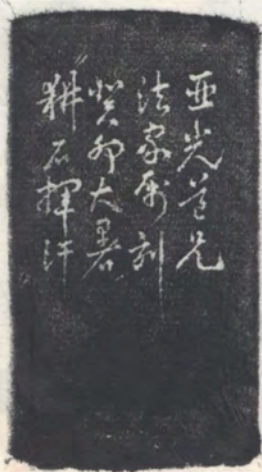 亚光道兄
法家属刻
癸卯大暑
耕石挥汗